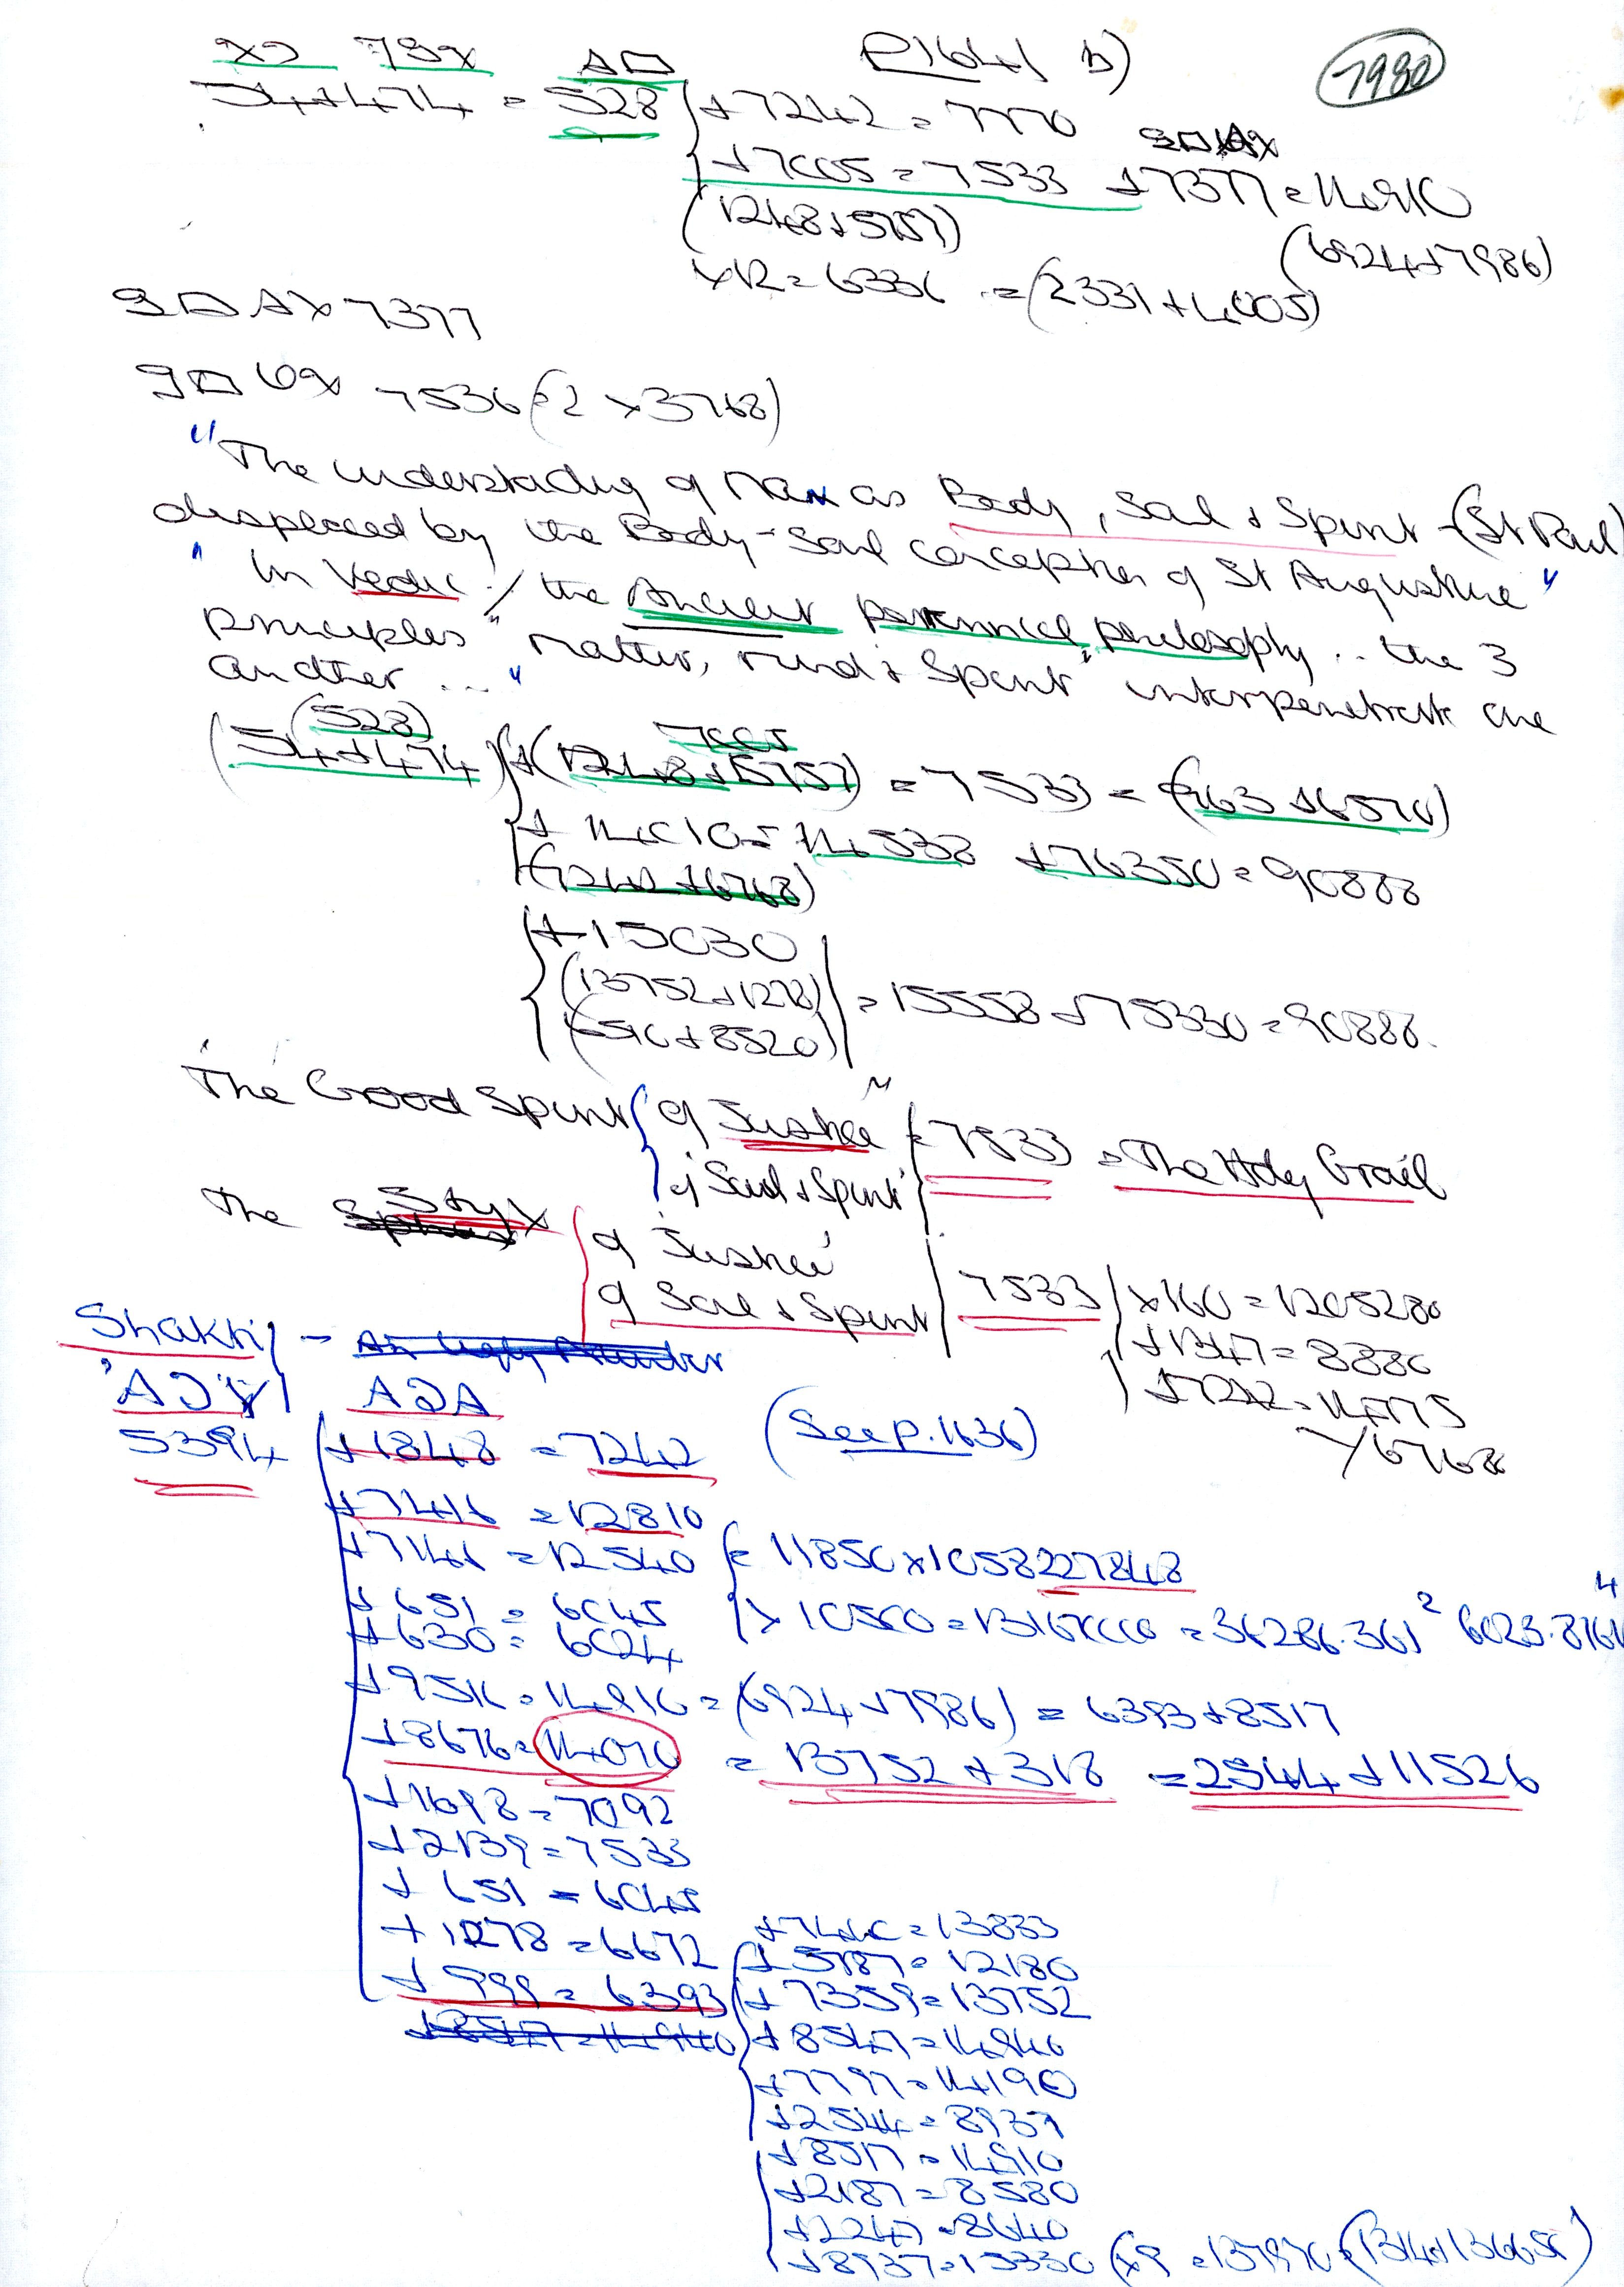 P1641 b)
7980
54+474 = 528
+7242 = 7770
+7005 = 7533 +7377 = 14910
(1248+5757)
(6924+7986)
×12 = 6336 = (2331+4005)
7377
7536 (=2×3768)
"The understanding of Man as Body, Soul & Spirit - (St Paul)
displaced by the Body-Soul conception of St Augustine"
"In Vedic / the Ancient perennial philosophy .. the 3
principles "matter, mind & Spirit" interpenetrate one
another ..."
(528)
7005
(54+474) +(1248+5757) = 7533 = (963+6570)
+14010 = 14538 +76350 = 90888
(7242+6768)
+15030
(13752+1278)
(6510+8520)
= 15558+75330 = 90888.
The Good Spirit
of Justice
of Soul & Spirit
= 7533 = The Holy Grail
The Styx
of Justice
of Soul & Spirit
7533
×160 = 1205280
+1347 = 8880
+7242 = 14775
/6768
Shakti -
'AJY
AJA
5394
+1848 = 7242
(See p. 1636)
+7416 = 12810
+7146 = 12540
= 11850×1058227848
+651 = 6045
×10500 = 1316
= 36286.361² 6023.
+630 = 6024
+9516 = 14910 = (6924+7986) = 6393+8517
+8676 = 14070 = 13752+318 = 2544+11526
+1698 = 7092
+2139 = 7533
+651 = 6045
+1278 = 6672
+999 = 6393
+7440 = 13833
+5787 = 12180
+7359 = 13752
+8547 = 14940
+7797 = 14190
+2544 = 8937
+8517 = 14910
+2187 = 8580
+2247 = 8640
+8937 = 15330 (×9 = 137970 = (1314+136656)